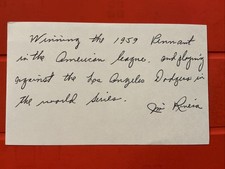 Winning the 1959 Pennant
in the American league. and playing
against the Los Angeles Dodgers in
the world series.
Jim Rivera